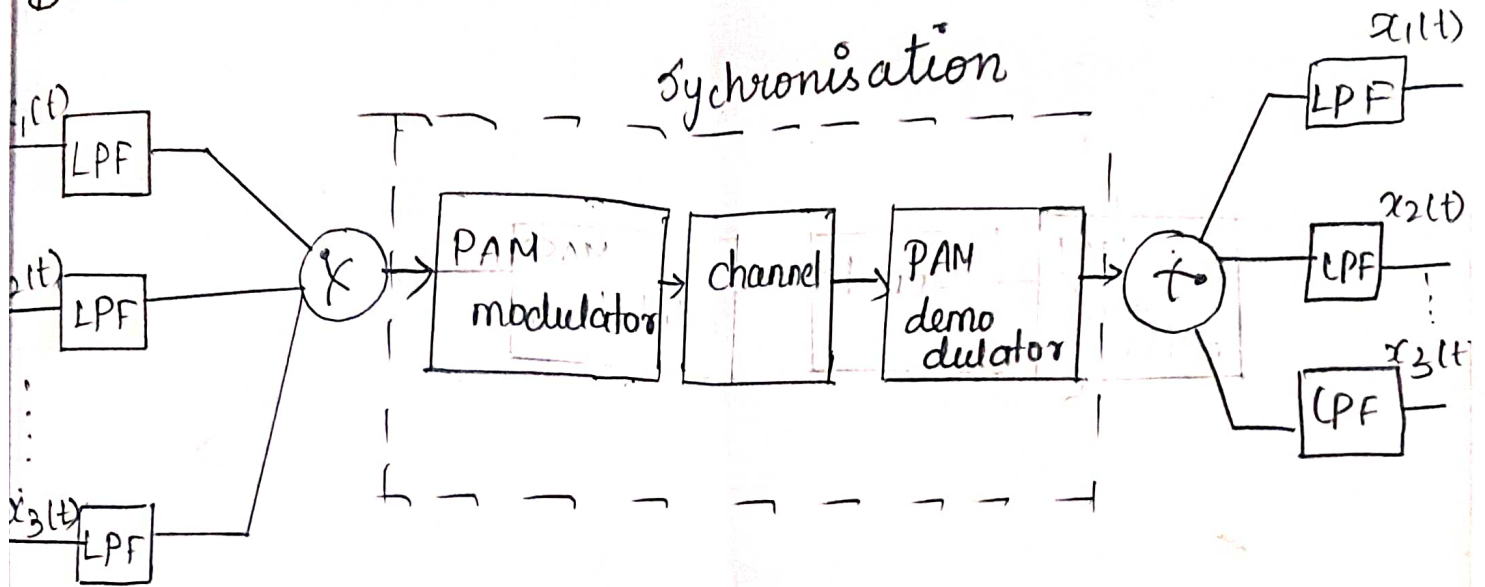 Sychronisation
x1(t)
1(t)
LPF
LPF
x2(t)
2(t)
LPF
X
PAM
modulator
channel
PAM
demo
dulator
+
LPF
x3(t
LPF
x3(t)
LPF